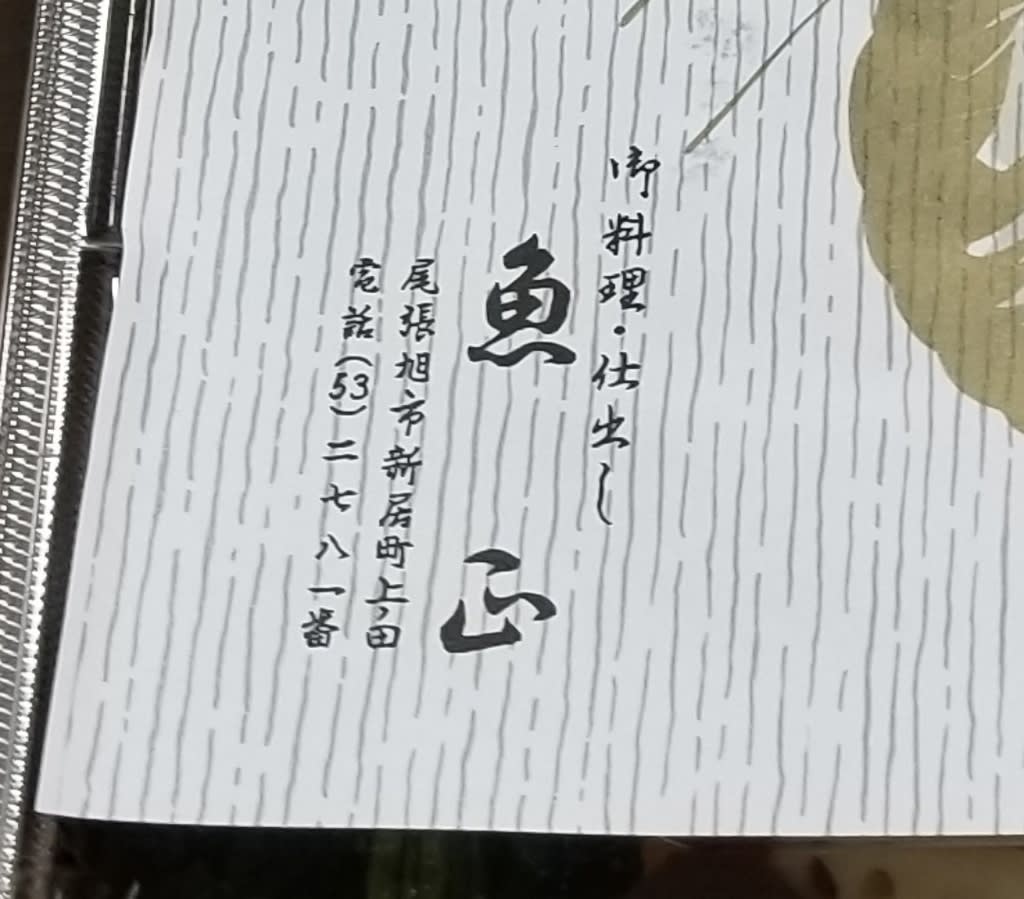 御料理・仕出し
魚正
尾張旭市新居町上ノ田
電話(53)二七八一番